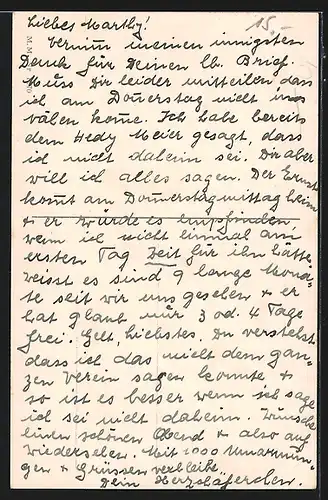 Liebes Marthy!
15.-
M. M.
Vernim meinen innigsten
Dank für Deinen lb. Brief.
Muss Dir leider mitteilen, dass
ich am Donerstag nicht ins
komme. Ich habe bereits
dem Hedy Meier gesagt, dass
ich nicht daheim sei. Dir aber
will ich alles sagen. Der Ernst
komt am Donnerstagmittag heim
+ er würde es empfinden
wenn ich nicht einmal am
ersten Tag Zeit für ihn hätte
weisst es sind 9 lange Mona-
te seit wir uns gesehen + er
hat glaub nur 3 od. 4 Tage
frei. Gelt, Liebstes. Du verstehst
dass ich das nicht dem gan-
zen Verein sagen konnte +
so ist es besser wenn ich sage
ich sei nicht daheim. Wünsche
einen schönen Obend + also auf
Wiedersehen. Mit 1000 Umarmun-
gen + Grüssen verbleibe
Dein Herzchäferchen.